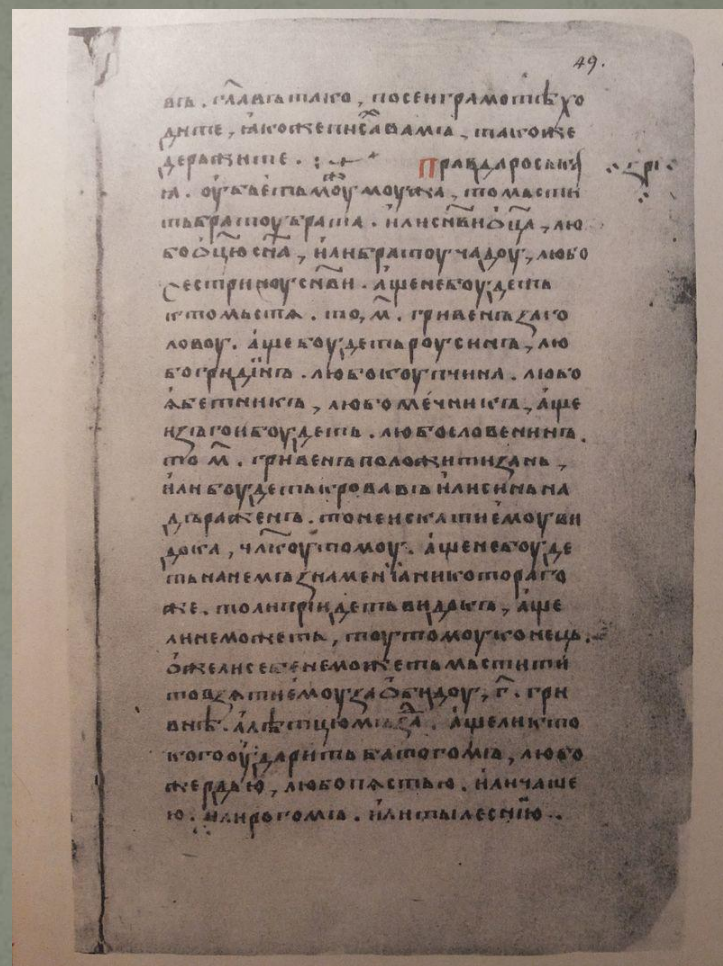 49.
въ. гл҃авъ тако, по сеи грамотѣ хо
дите, ꙗкоже писа́ вамъ, такоже
держите. Правда росьскаꙗ
ꙗ. оу҆бьеть моу҆жь моу҆жа, то мьсти
ть братоу брата. и҆ли сн҃ви ѻ҆ц҃а, лю
бо ѻ҆ц҃ю сн҃а, и҆ли братоу чадоу, любо
сестриноу сн҃ви. а҆ще не боудеть
кто мьстѧ. то, м҃. гривенъ за го
ловоу. а҆ще боудеть роусинъ, лю
бо гридинъ. любо коупчина. любо
ꙗ҆бетникъ, любо мечникъ, а҆ще
изъгои боудеть. любо словенинъ.
то м҃. гривенъ положити за нь,
и҆ли боудеть кровавъ и҆ли синь на
дъраженъ. то не искати е҆моу ви
дока, чл҃коу томоу. а҆ще не боуде
ть на немъ знаменїа никотораго
же. то ли прїидеть видокъ, а҆ще
ли не можеть, тоу томоу конець.
ѻ҆же ли себе не можеть мьстити
то взѧти е҆моу за ѻ҆бидоу, г҃. гри
внѣ. а҆ лѣтцю мъзда. а҆ще ли кто
кого оу҆дарить батогомъ, любо
жердью, любо пѧстью. и҆ли чаше
ю. и҆ли рогомъ. и҆ли тылеснїю.